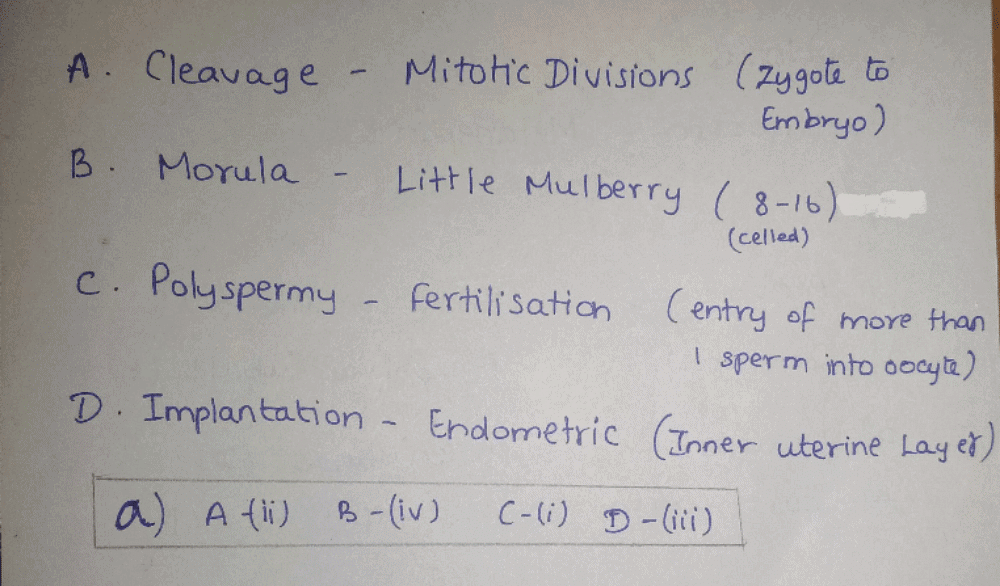 A. Cleavage - Mitotic Divisions (Zygote to
Embryo)
B. Morula - Little Mulberry (8-16)
(celled)
C. Polyspermy - fertilisation (entry of more than
1 sperm into oocyte)
D. Implantation - Endometric (Inner uterine Layer)
a) A-(ii) B-(iv) C-(i) D-(iii)